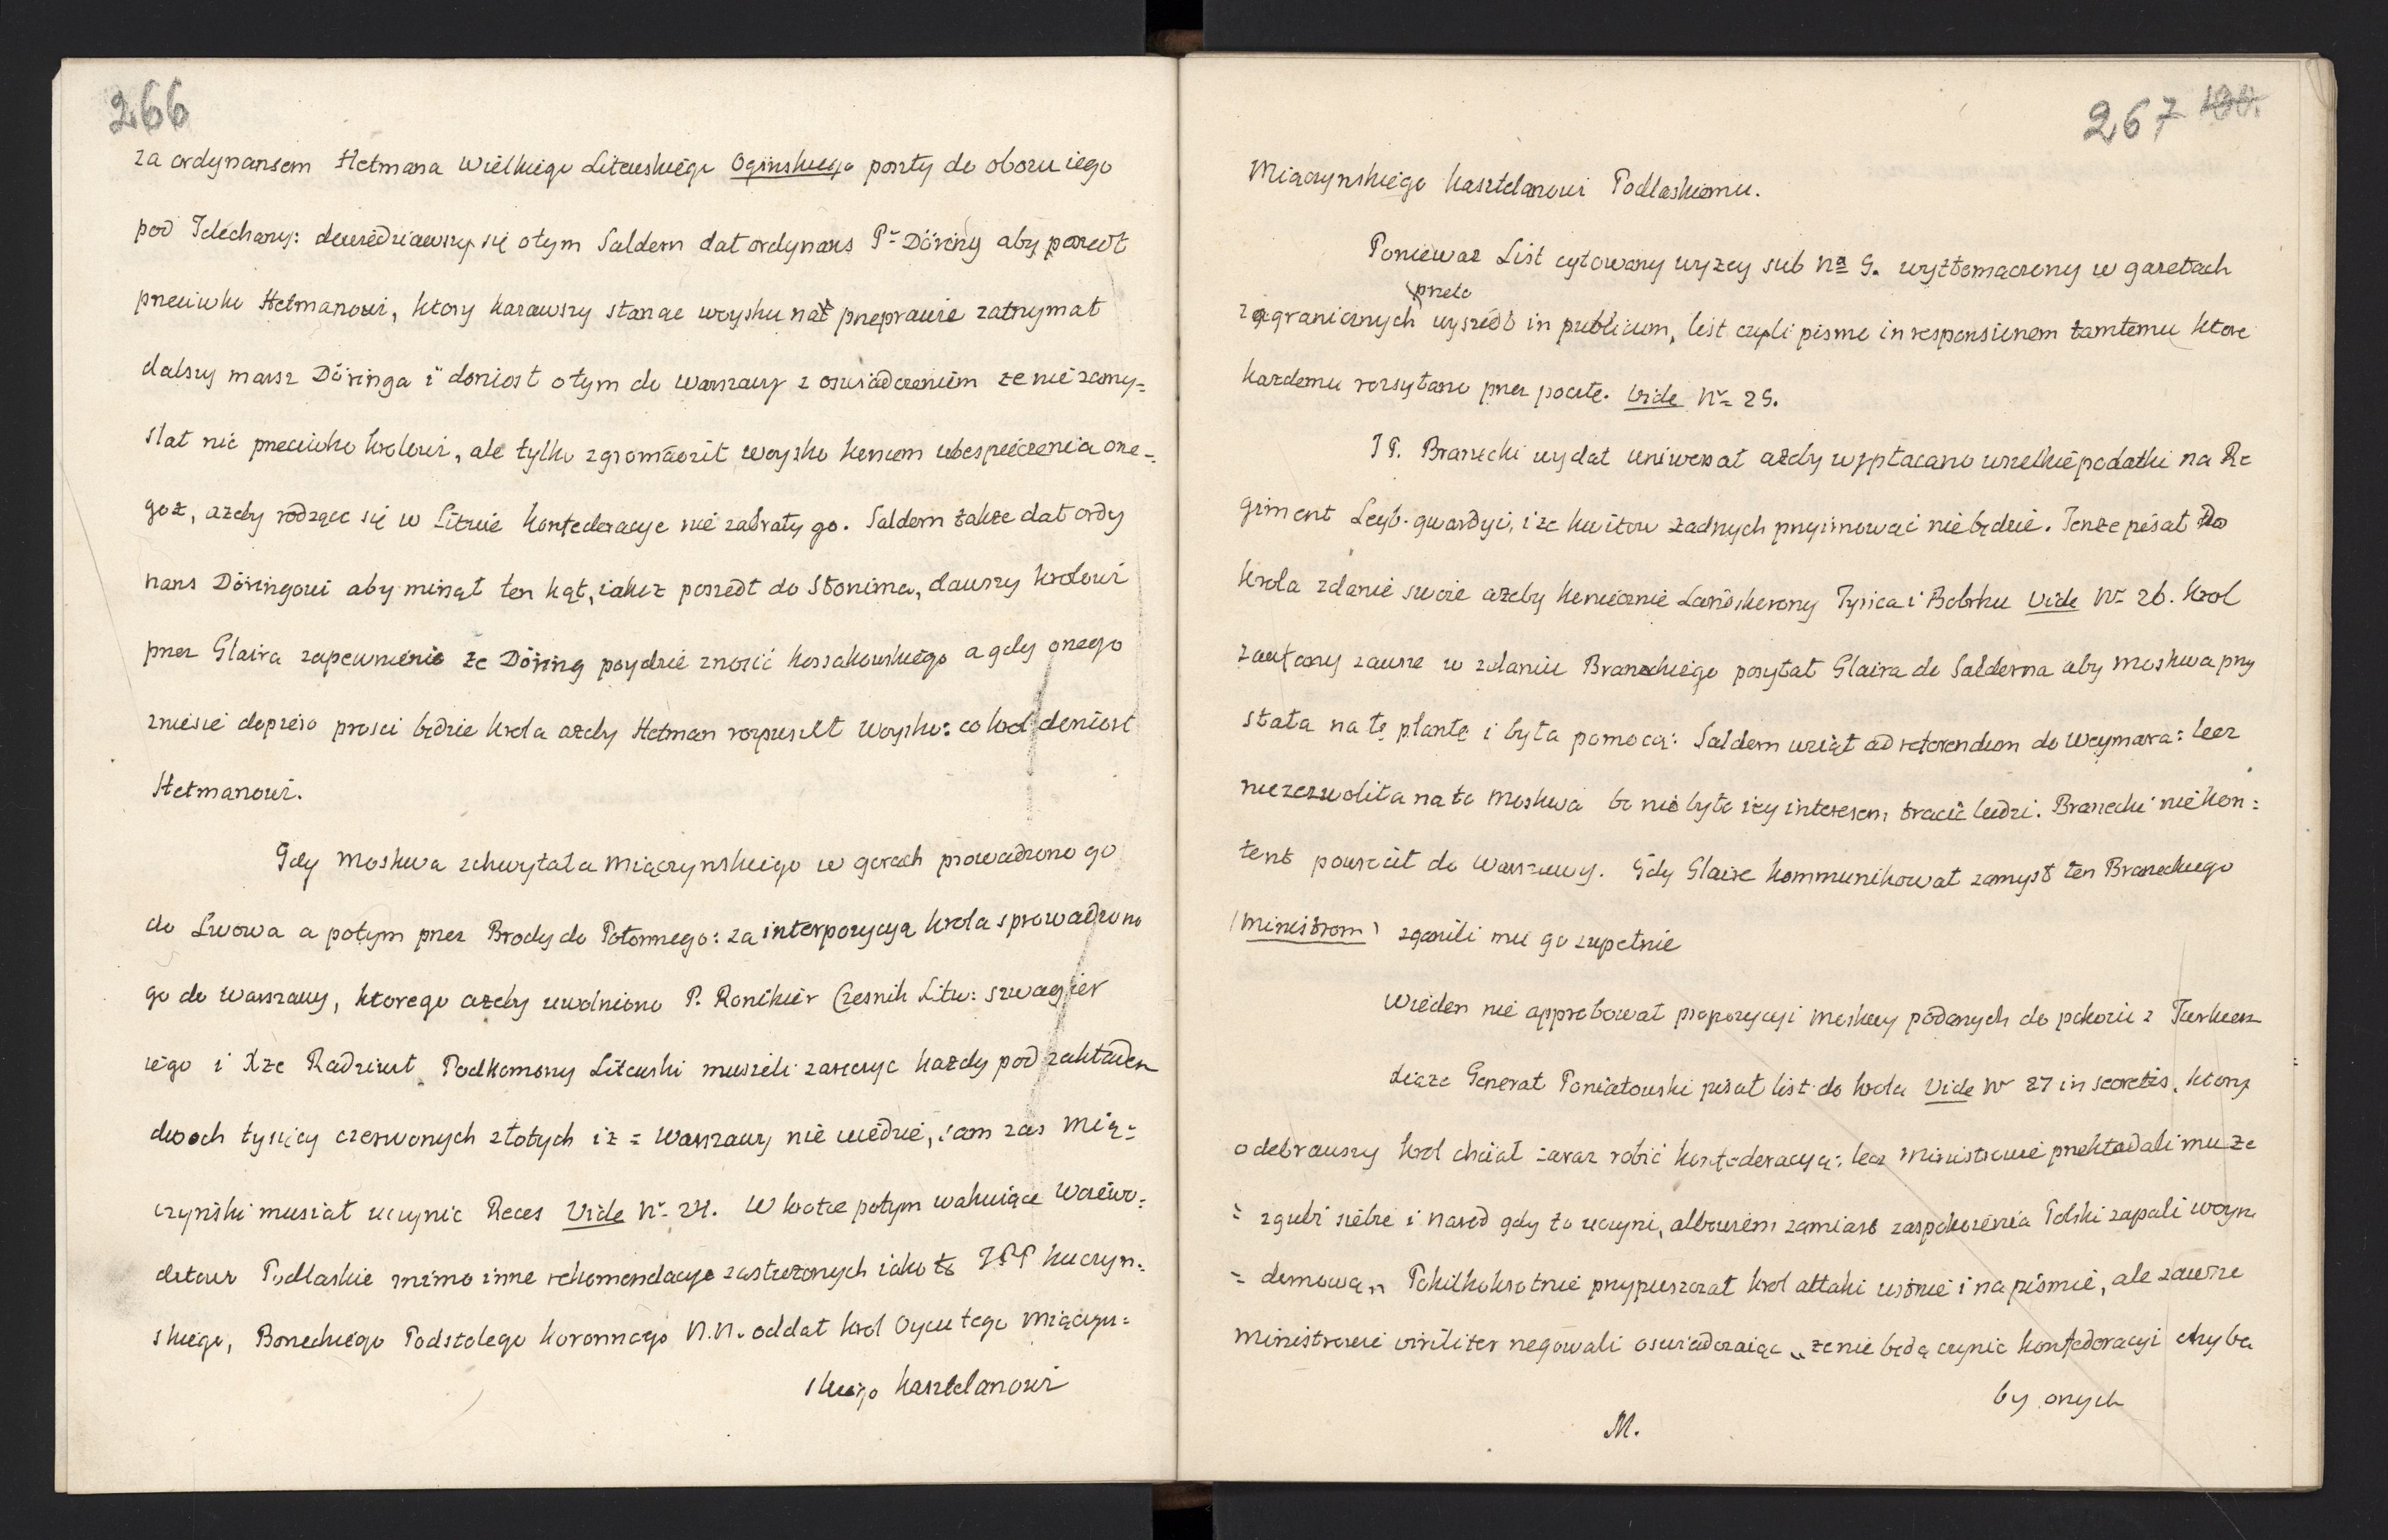 266
za ordynansem Hetmana Wielkiego Litewskiego Oginskiego poszły do obozu iego
pod Telechany: dowiedziawszy się otym Saldern dał ordynans P: Döring aby poszedł
przeciwko Hetmanowi, ktory kazawszy stanąc woysku nad przeprawie zatrzymał
dalszy marsz Döringa i doniosł otym do Warszawy z oswiadczeniem ze nie zamy=
slał nic przeciwko krolowi, ale tylko zgromadził woysko koncem ubespieczenia one=
goż, ażeby rodzące się w Litwie konfederacye nie zabrały go. Saldern także dał ordy
nans Döringowi aby minął ten kąt, iakoż poszedł do Słonima, dawszy krolowi
przez Glaira zapewnienie że Döring poydzie znosić Kossakowskiego a gdy onego
zniesie dopiero prosci będzie krola ażeby Hetman rozpuscił woysko: co krol doniosł
Hetmanowi.
Gdy Moskwa schwytała Miączynskiego w gorach prowadzono go
do Lwowa a potym przez Brody do Połonnego: za interpozycyą krola sprowadzono
go do Warszawy, ktorego ażeby uwolniono P. Ronikier Czesnik Litw: szwagier
iego i Xże Radziwił Podkomorzy Litewski musieli zaręczyc każdy pod zakładem
dwoch tysięcy czerwonych złotych iż z Warszawy nie uiedzie, sam zas Mią=
czyński musiał uczynic Reces Vide Nr 24. W krotce potym wakuiące Woiewo=
dztwo Podlaskie mimo inne rekomendacye zasłużonych iako to JPP Kuczyn=
skiego, Bonieckiego Podstolego koronnego N.N. oddał krol Oycu tego Miączyn=
skiego Kasztelanowi
267
Miączynskiego Kasztelanowi Podlaskiemu.
Poniewaz List cytowany wyzey sub No 9. wytłomaczony w gazetach
przeto
zagranicznych wyszedł in publicum, list czyli pismo in responsionem tamtemu ktore
każdemu rozsyłano przez pocztę. Vide Nr 25.
JP. Branecki wydał uniwersał ażeby wypłacano wszelkie podatki na Re
giment Leyb-gwardyi, i że kwitow żadnych przyimować nie będzie. Tenże pisał do
krola zdanie swoie ażeby koniecznie Landskorony Tynca i Bobrku Vide Nr 26. Krol
zaufany zawsze w zdaniu Braneckiego posyłał Glaira do Salderna aby Moskwa przy
stała na tę plantę i była pomocą: Saldern wziął ad referendum do Weymara: lecz
niezezwoliła na to Moskwa bo nie było iey interesem tracić ludzi. Branecki nie kon=
tent powrocił do Warszawy. Gdy Glaire kommunikował zamysł ten Braneckiego
(Ministrom) zganili mu go zupełnie
Wieden nie approbował propozycyi Moskwy podanych do pokoiu z Turkiem
Xiąże Generał Poniatowski pisał list do krola Vide Nr 27 in secretis, ktory
odebrawszy krol chciał zaraz robić konfederacyą: lecz Ministrowie przekładali mu że
= zgubi siebie i narod gdy to uczyni, albowiem zamiast zaspokoienia Polski zapali woyn
= domową" Pokilkokrotnie przypuszczał krol attaki ustnie i na pismie, ale zawsze
Ministrowie viriliter negowali oswiadczaiąc „ze nie będą czynic konfederacyi chyba
by onych
M.